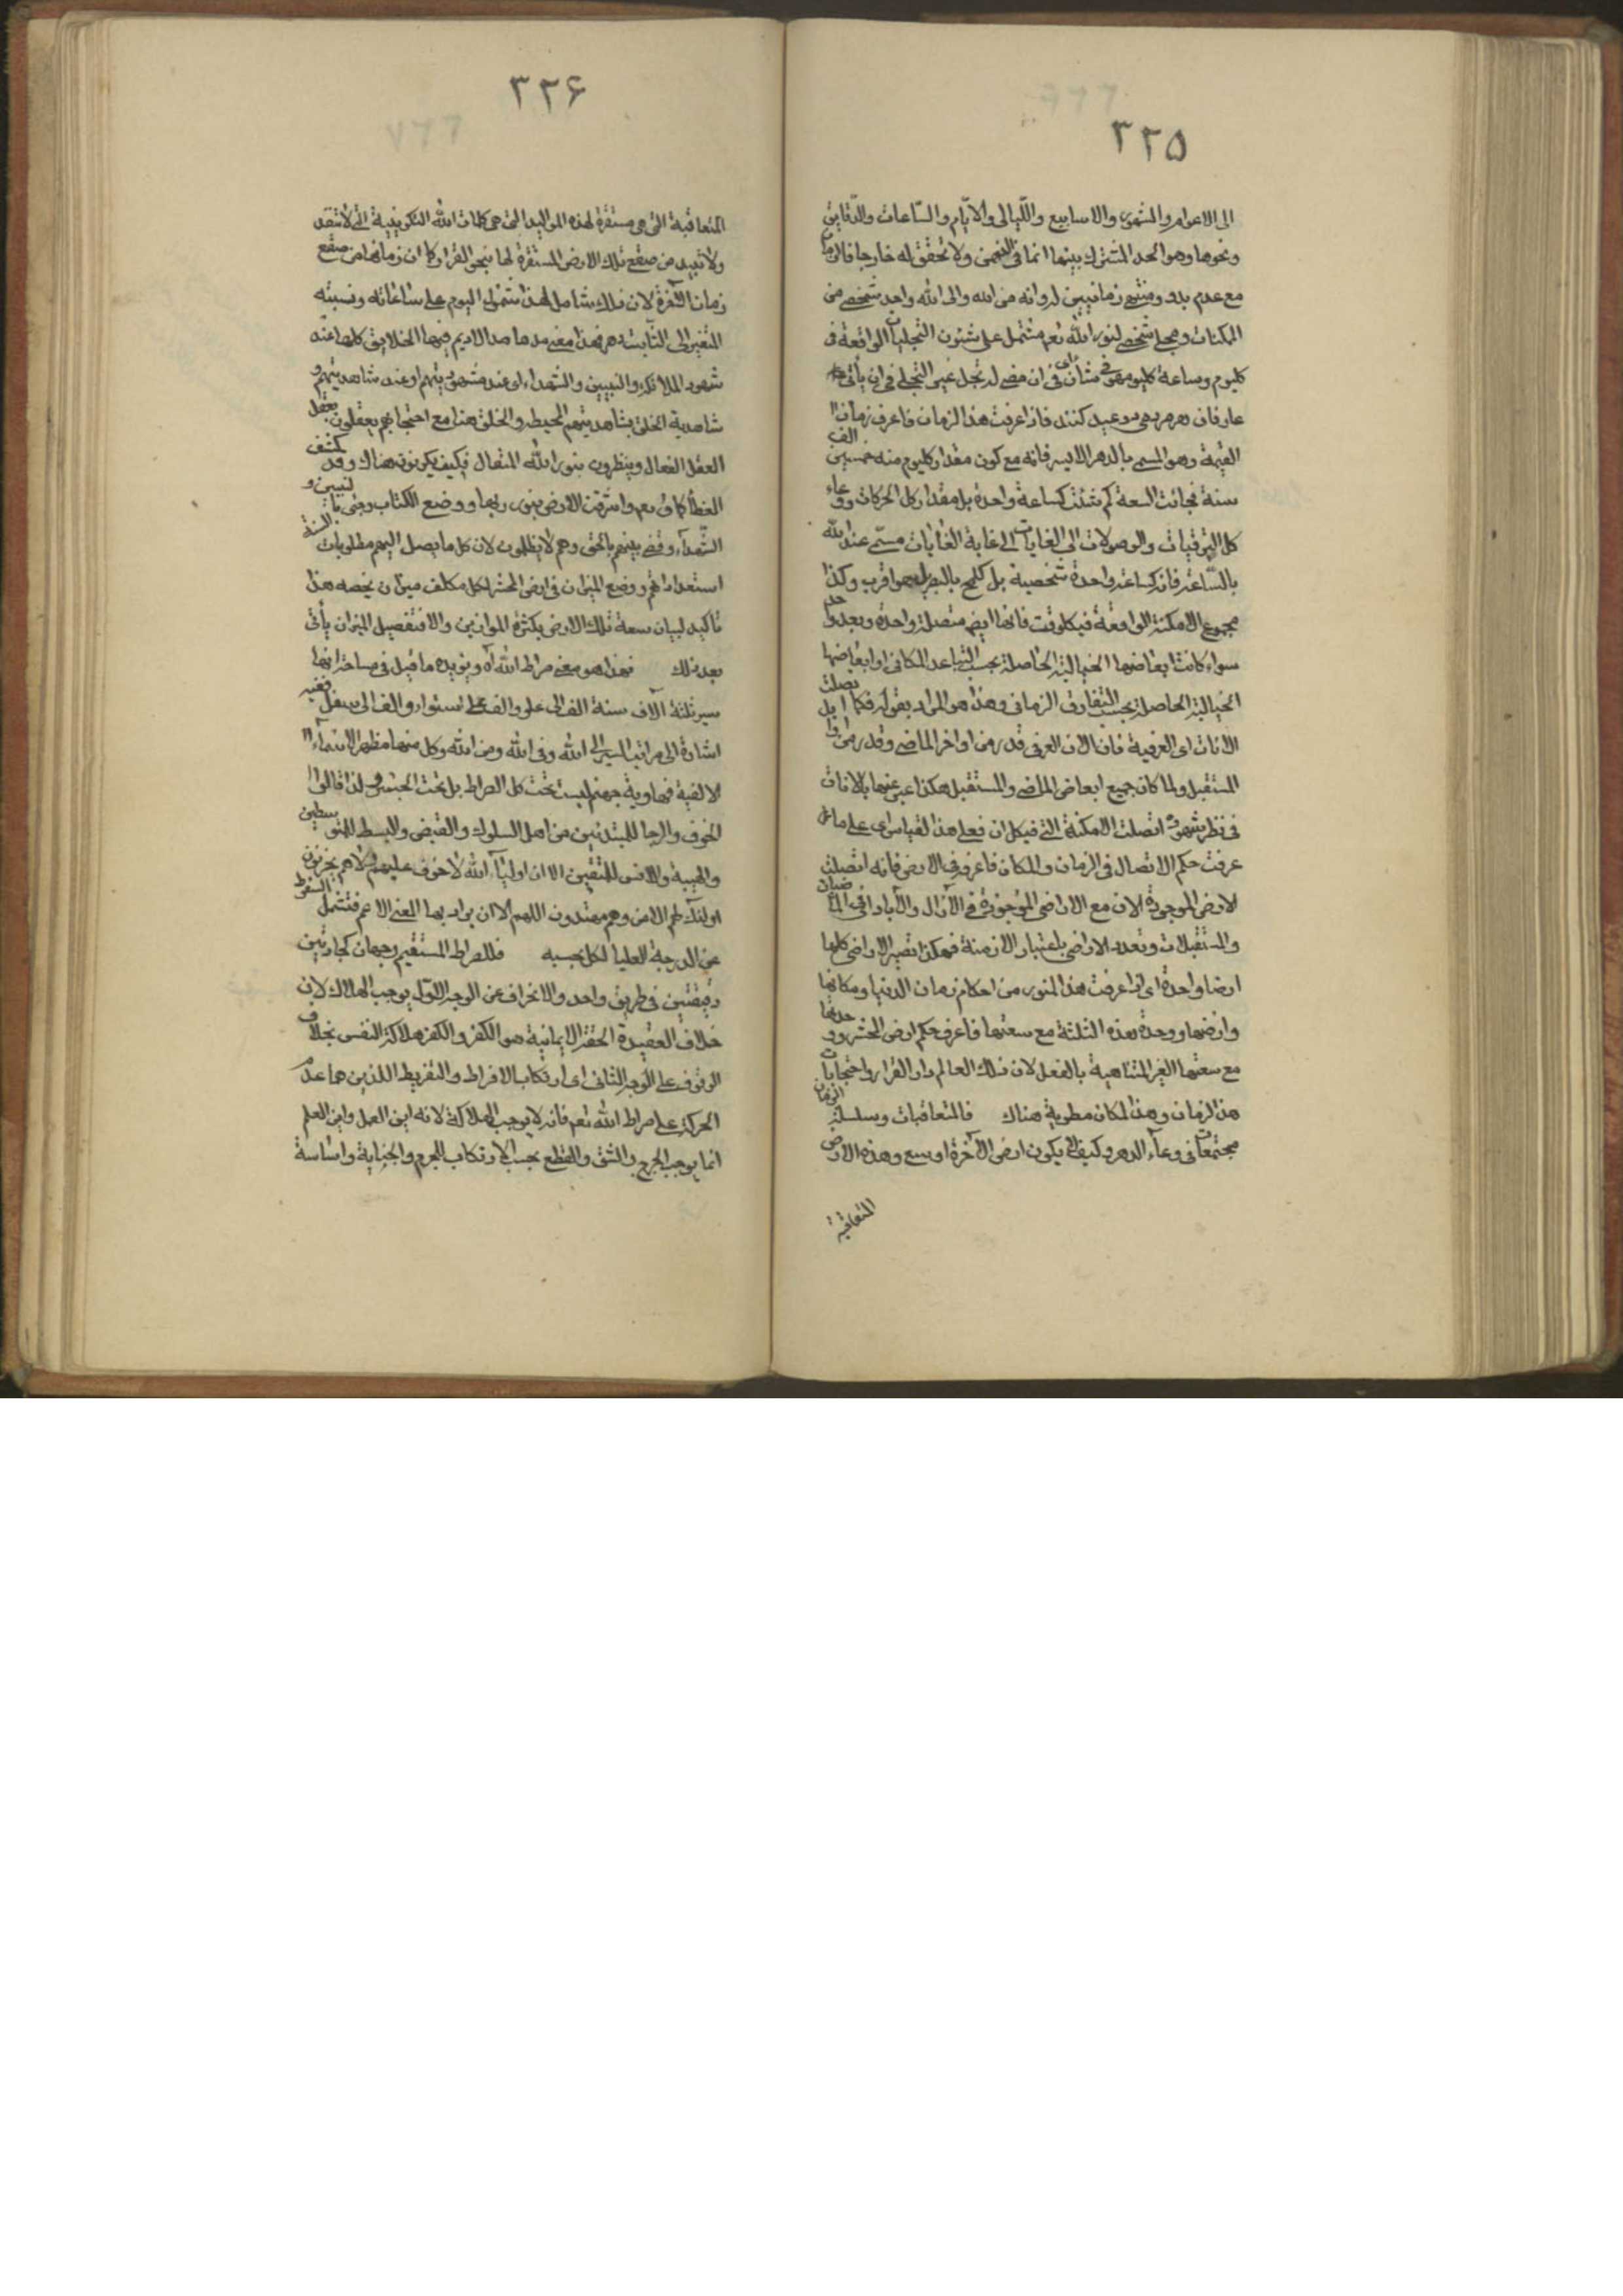 ٣٢٥
الى الاعوام والشهور والاسابيع والليالى والايام والساعات والدقايق
ونحوها وهو الحد المشترك بينهما انما فى الذهن ولا تحقق له خارجا فالزمان
مع عدم بدو ومنتهى زمانيين لدوانه من الله والى الله واحد شخصى من
الممكنات ومجلى شخصى لنور الله تعم مشتمل على شئون التجليات الواقعة فى
كليوم وساعة كليوم هو فى شأن اى فى ان مضى لد تجل غير التجلى فى ان يأتى
عارفان هر دمى دو عيد كنند فاذا عرفت هذا الزمان فاعرف زمان
القيمة وهو المسمى بالدهر الايسر فانه مع كون مقدار كليوم منه خمسين الف
سنة نجائت السعة كم شئت كساعة واحدة بل مقدار كل الحركات ووعاء
كل الترقيات والوصولات الى الغايات الى غاية الغايات مسمى عند الله
بالساعة فانه كساعة واحدة شخصية بل كلمح بالبصر بل هو اقرب وكذا
مجموع الامكنة الواقعة فى كلوقت فانها ايضا متصلة واحدة وبعد واحد
سواء كانت ابعاضها الخيالية الحاصلة بحسب التباعد المكانى او ابعاضها
الخيالية الحاصلة بحسب التفارق الزمانى وهذا هو المراد بقوله فكما اتصلت
الانات اى العرفية فان الان العرفى قدر من اواخر الماضى وقدر من اوايل
المستقبل ولما كان جميع ابعاض الماضى والمستقبل هكذا عبر عنهما بالانات
فى نظر شهود اتصلت الامكنة التى فى كل ان فعلى هذا القياس اى على ما
عرفت حكم الاتصال فى الزمان والمكان فاعرفه فى الارض فانه اتصلت
الارض الموجودة الان مع الاراضى الموجودة فى الآزال والآباد اى فى الماضيات
والمستقبلات وتعدد الاراضى باعتبار الازمنة فهكذا تصير الاراضى كلها
ارضا واحدة اى اذا عرفت هذا المنور من احكام زمان الدنيا ومكانها
وارضها ووحدة هذه الثلثة مع سعتها فاعرف حكم ارض المحشر ووحدتها
مع سعتها الغير المتناهية بالفعل لان ذلك العالم دار القرار واحتجابات
هذا الزمان وهذا المكان مطوية هناك فالمتعاقبات وسلسلة الزمان
مجتمعات فى وعاء الدهر وكيف لا يكون ارض الآخرة اوسع وهذه الارض
المتعاقبة
٣٢۶
المتعاقبة التى هى مستقرة لهذه المواليد التى هى كلمات الله التكوينية التى لا تنفد
ولا تبيد من صقع تلك الارض المستقرة لها بنحو القرار كما ان زمانها من صقع
زمان الآخرة لان ذلك شامل لهذا شمول اليوم على ساعاته ونسبته
المتغير الى الثابت دهر فهذا معنى مدها مد الاديم فيها الخلايق كلها عند
شهود الملائكة والنبيين والشهداء اى عند مشهوديتهم او عند شاهديتهم و
شاهدية الخلق بشاهديتهم المحيطة والخلق هنا مع احتجابهم يعقلون بعقل
العقل الفعال وينظرون بنور الله المتعال فكيف يكونون هناك وقد كشف
الغطا كما ق تعم واشرقت الارض بنور ربها ووضع الكتاب وجئ بالنبيين و
الشهداء وقضى بينهم بالحق وهم لا يظلمون لان كل ما يصل اليهم مطلوبات السنة
استعداداتهم ووضع الميزان فى ارض المحشر لكل مكلف ميزان يخصه هذا
تاكيد لبيان سعة تلك الارض بكثرة الموازين والا فتفصيل الميزان يأتى
بعد ذلك فهذا هو معنى صراط الله اه ويؤيده ما قيل فى مساحته انها
سير ثلثة آلاف سنة الف الى علو والف على استواء والف الى سفل ففيه
اشارة الى مراتب السير الى الله وفى الله ومن الله وكل منها مظهر الاسماء
الالفية فهاوية جهنم ليست تحت كل الصراط بل تحت الجسر ولذا قالوا
الخوف والرجا للمبتدئين من اهل السلوك والقبض والبسط للمتوسطين
والهيبة والانس للمتقين الا ان اولياء الله لا خوف عليهم ولا هم يحزنون
اولئك لهم الامن وهم مهتدون اللهم الا ان يراد بها المعنى الاعم فتشمل السقوط
عن الدرجة العليا لكل بحسبه فللصراط المستقيم وجهان كجادتين
دقيقتين فى طريق واحد والانحراف عن الوجه الاول يوجب الهلاك لان
خلاف العقيدة الحقة الايمانية هو الكفر والكفر هلاكة النفس بخلاف
الوقوف على الوجه الثانى اى ارتكاب الافراط والتفريط اللذين هما عدم
الحركة على صراط الله تعم فانه لا يوجب الهلاكة لانه اين العمل واين العلم
انما يوجب الجرح والشق والقطع بحسب الارتكاب للجرم والجناية واساسة